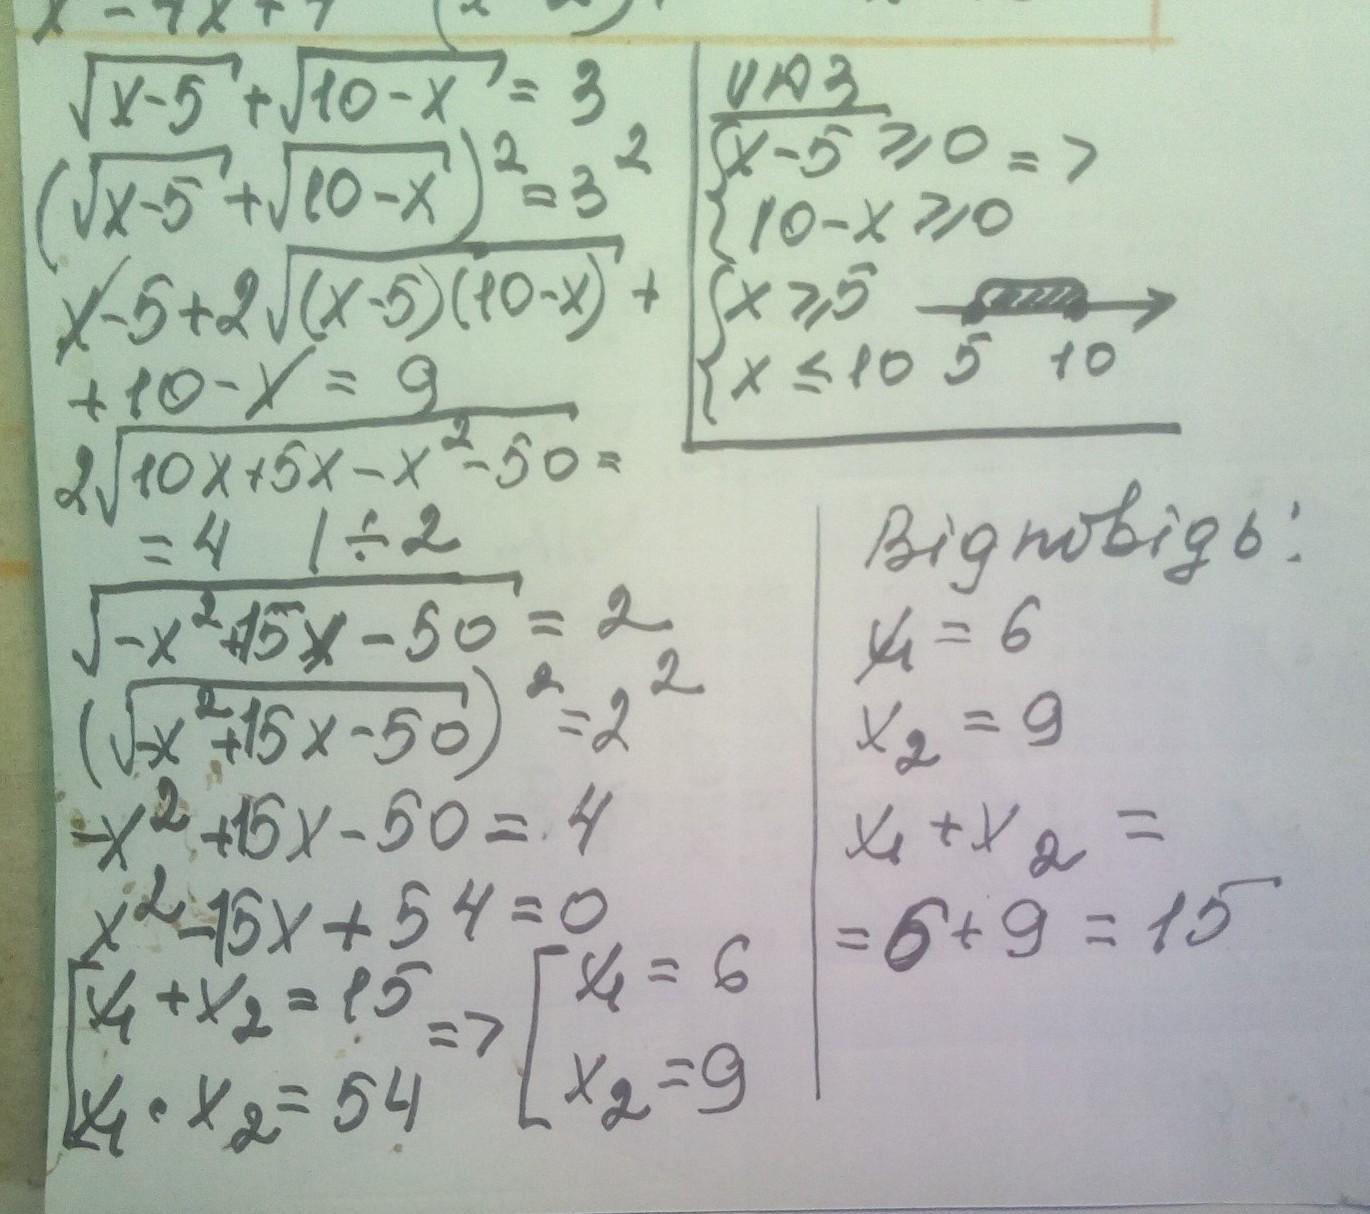 √(x-5) + √(10-x) = 3
(√(x-5) + √(10-x))² = 3²
x-5+2√((x-5)(10-x)) +
+10-x = 9
2√(10x+5x-x²-50) =
= 4 | ÷ 2
√(-x²+15x-50) = 2
(√(-x²+15x-50))² = 2²
-x²+15x-50 = 4
x²-15x+54 = 0
[ x₁+x₂ = 15
x₁·x₂ = 54
=> [ x₁ = 6
x₂ = 9
{ x-5 ≥ 0 =>
10-x ≥ 0
{ x ≥ 5
x ≤ 10 5 10
Відповідь:
x₁ = 6
x₂ = 9
x₁+x₂ =
= 6+9 = 15